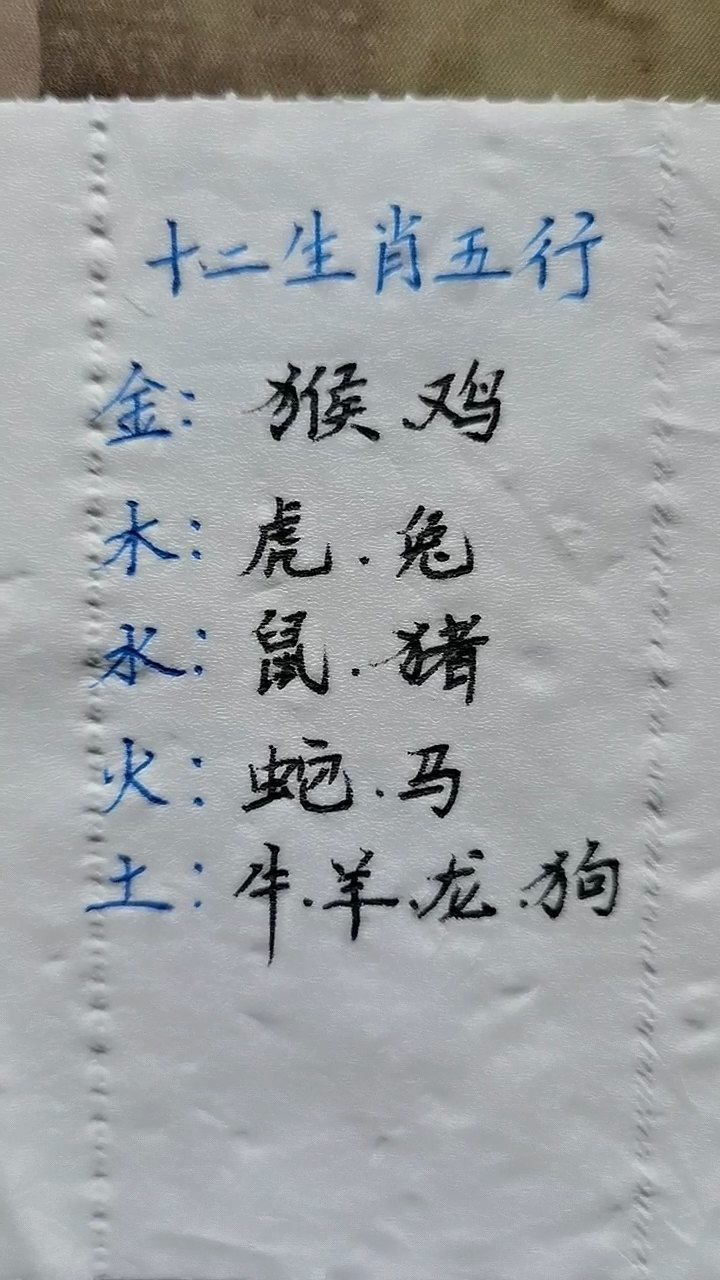 十二生肖五行
金：猴、鸡
木：虎.兔
水：鼠.猪
火：蛇.马
土：牛.羊、龙.狗